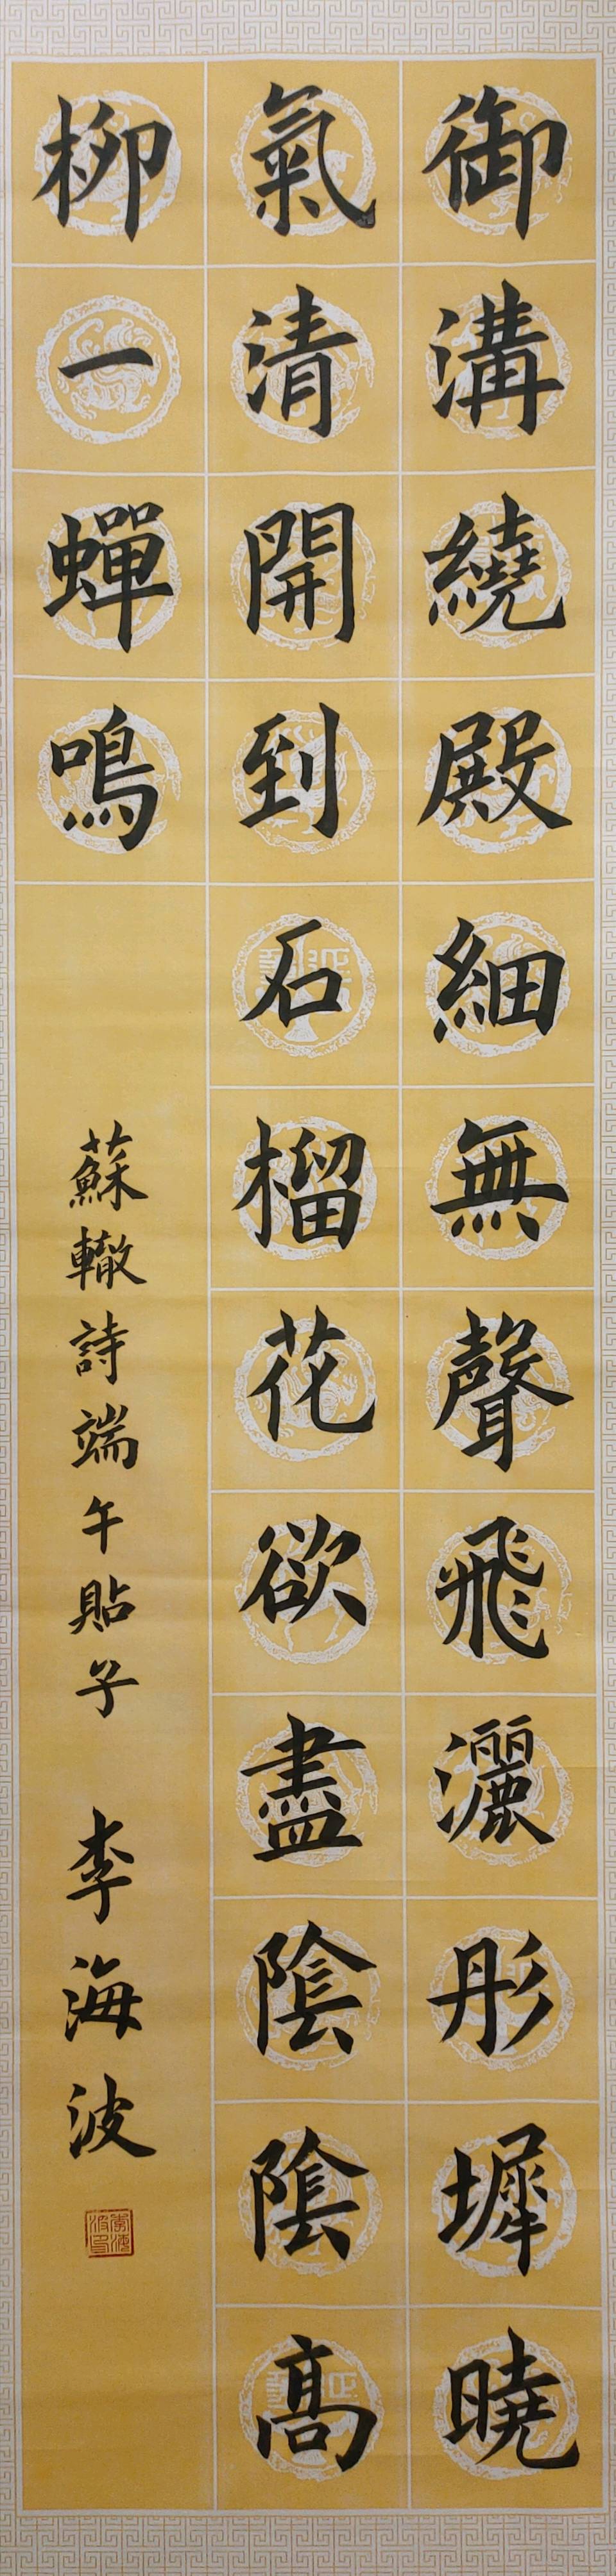 御溝繞殿細無聲飛灑彤墀曉
氣清開到石榴花欲盡陰陰高
柳一蟬鳴
蘇轍詩端午貼子 李海波